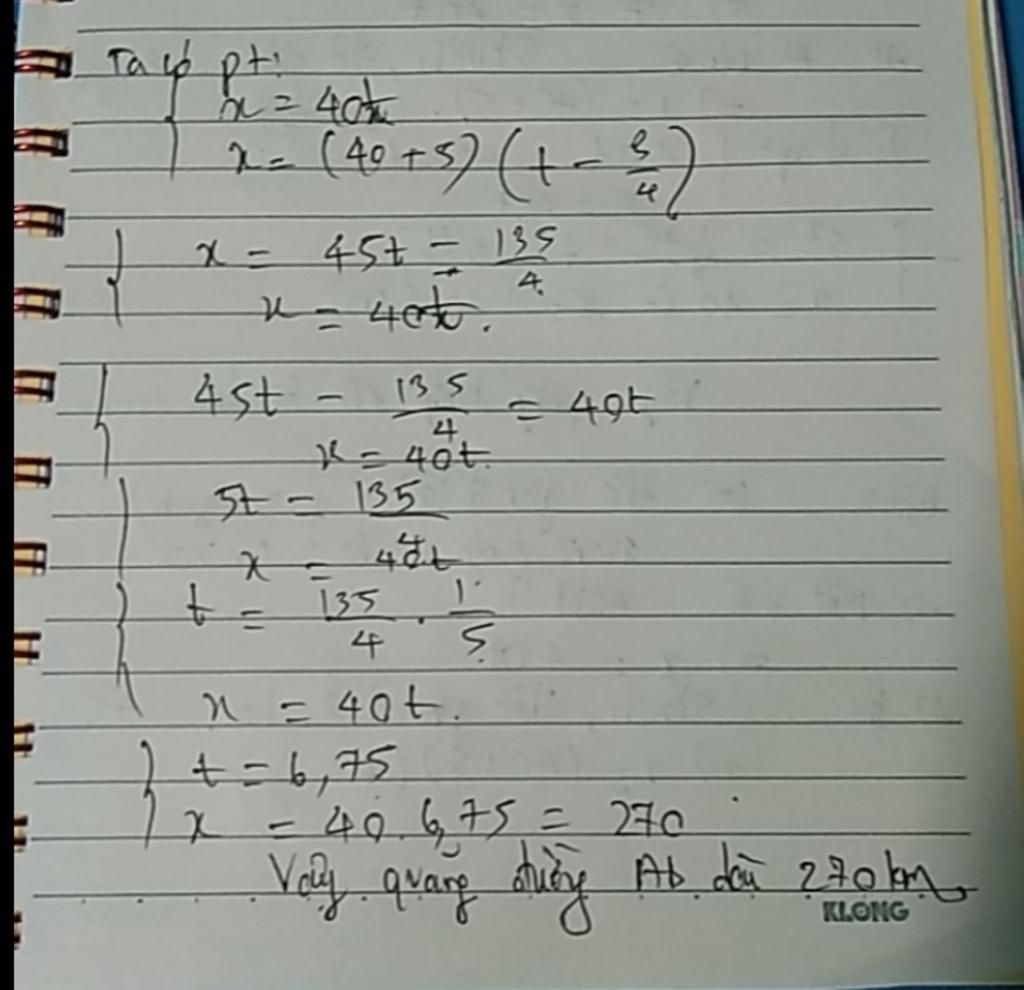 Ta có pt:
x = 40t
x = (40 + 5) (t - 3/4)
x = 45t - 135/4
x = 40t.
45t - 135/4 = 40t
x = 40t.
5t = 135/4
x = 40t
t = 135/4 . 1/5
x = 40t.
t = 6,75
x = 40. 6,75 = 270
Vậy quãng đường Ab dài 270 km
KLONG